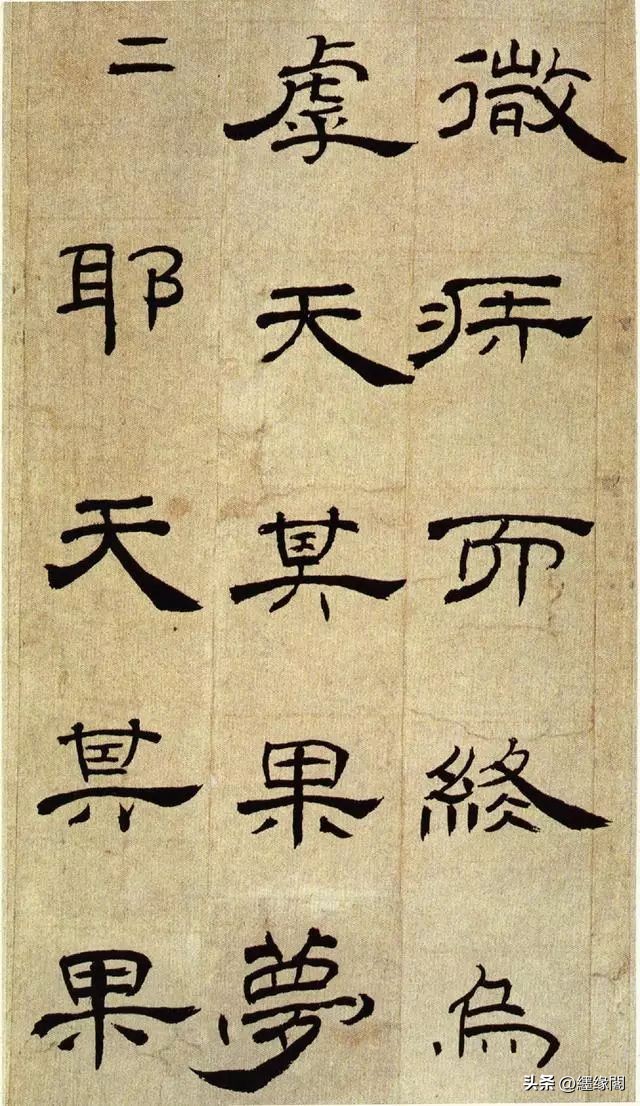 微疾而終烏
虖天其果夢
二耶天其果
头条 @纆缘閣